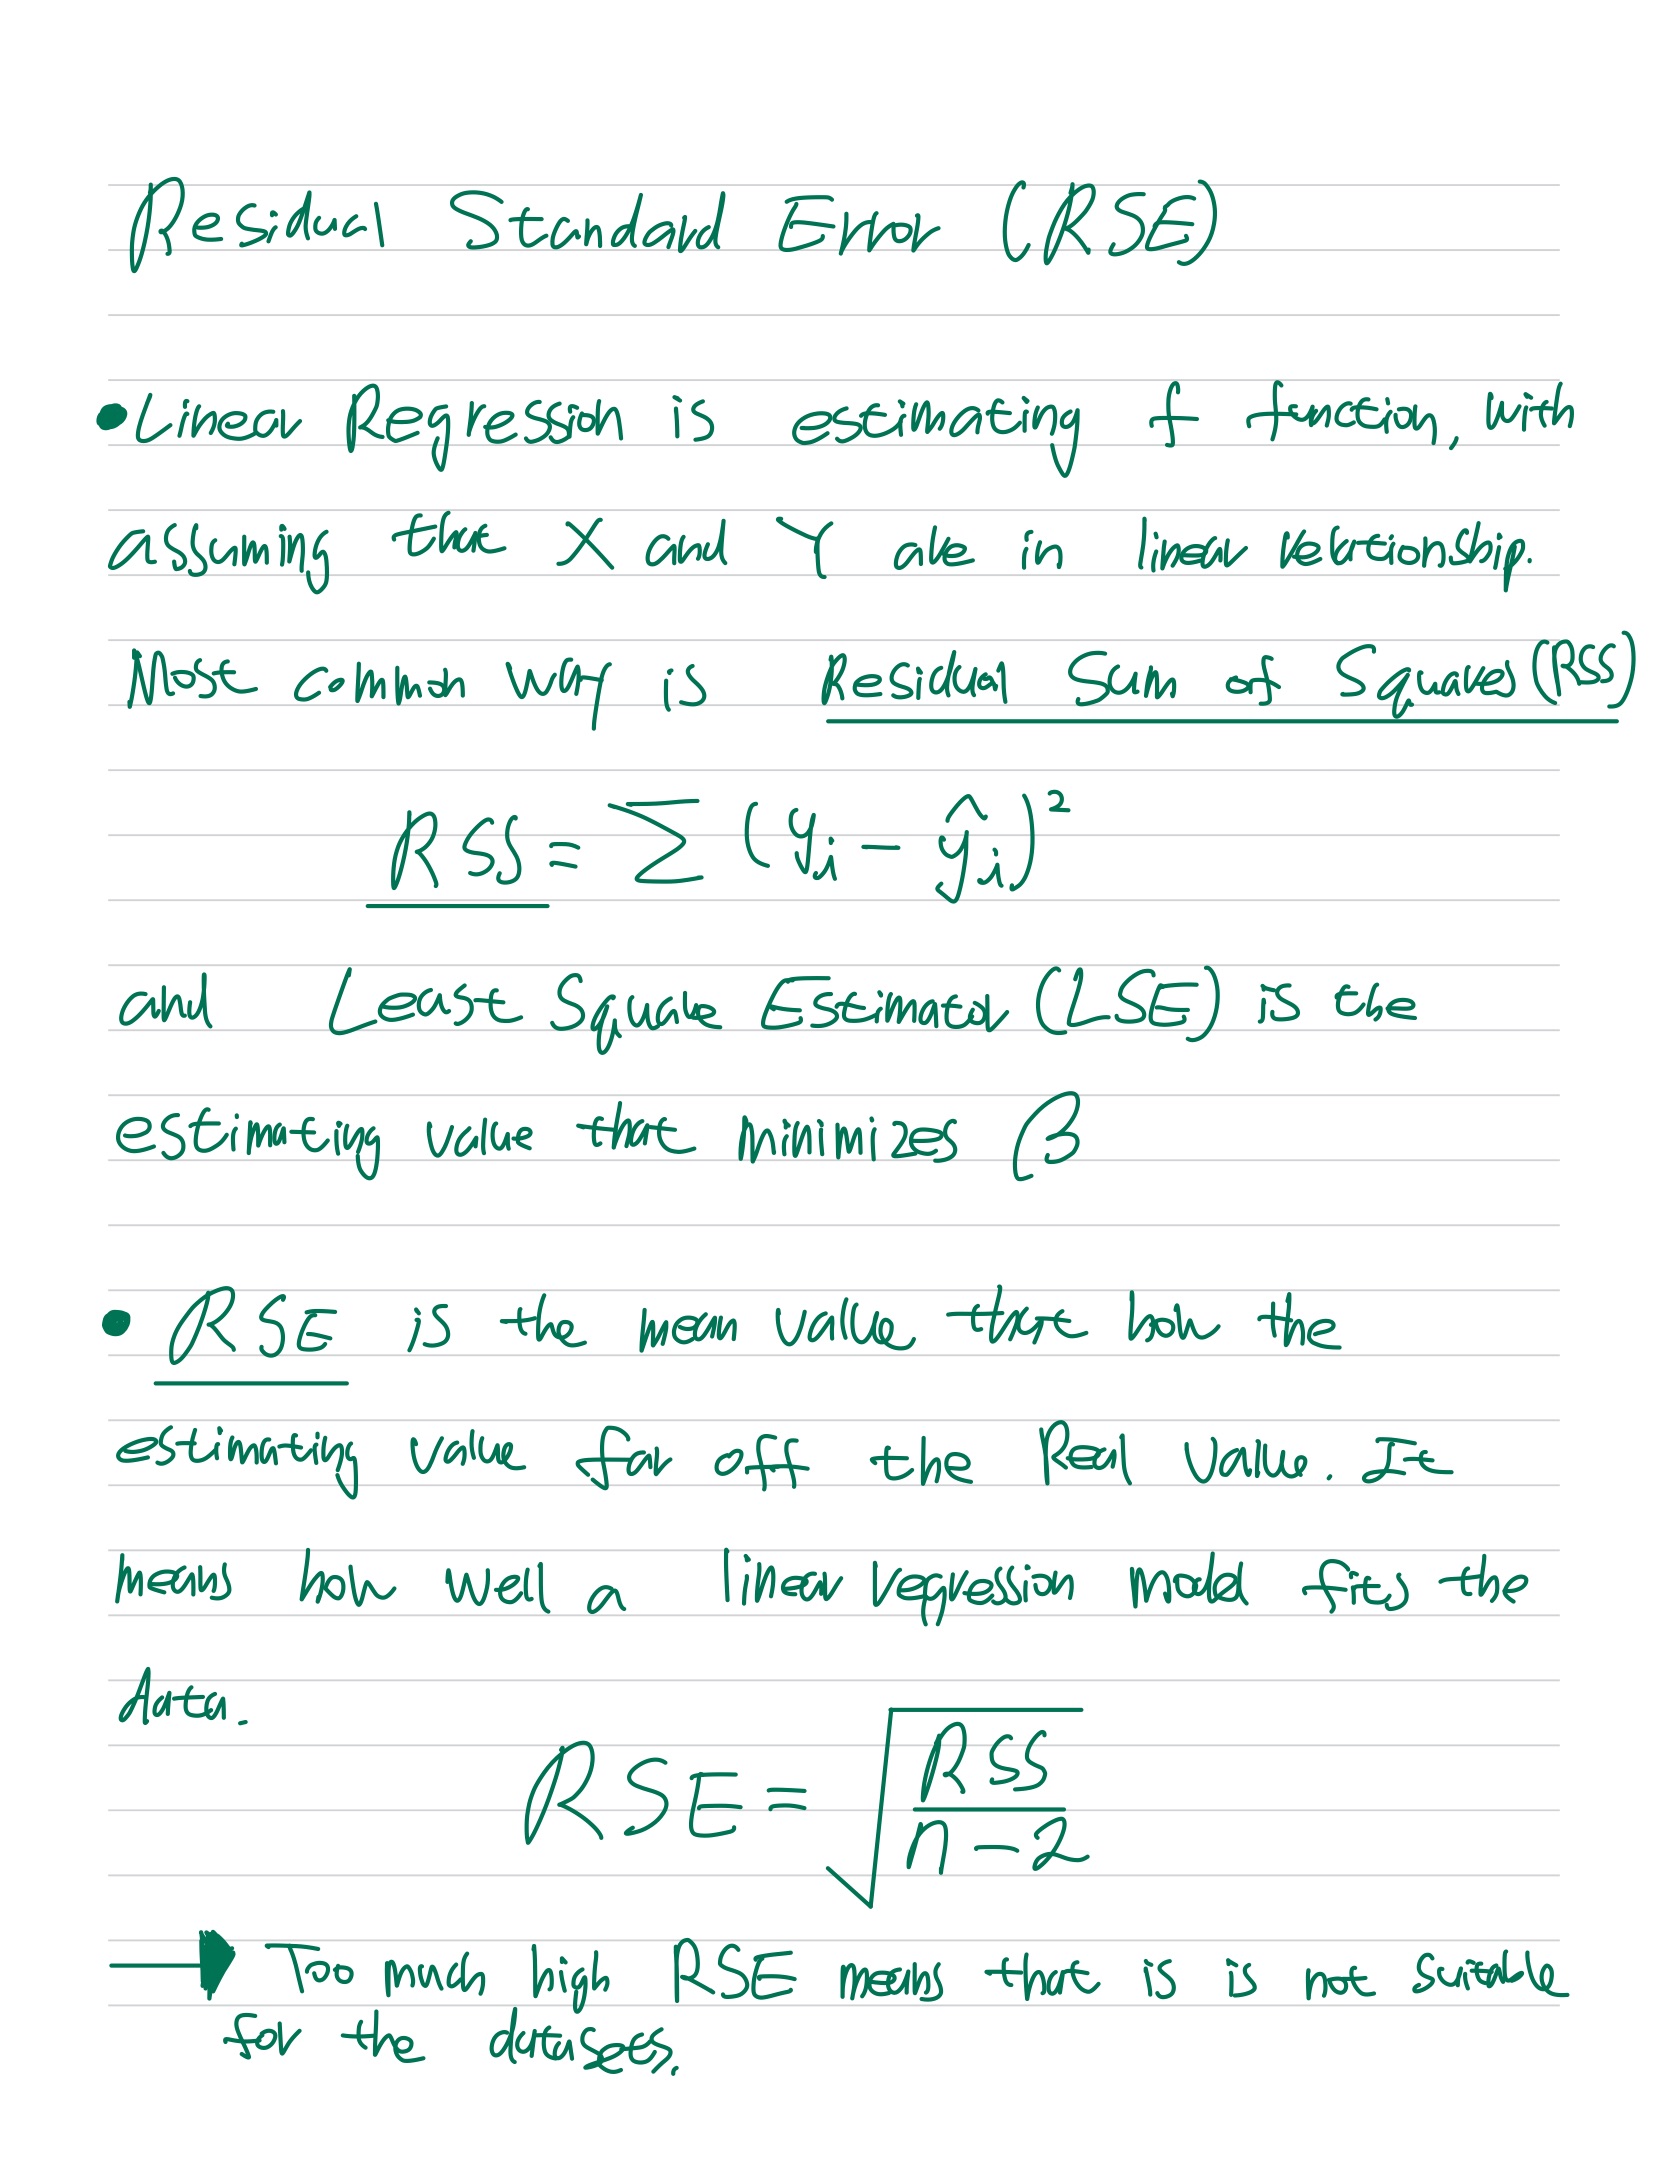 Residual Standard Error (RSE)
• Linear Regression is estimating f function, with
assuming that X and Y are in linear relationship.
Most common way is Residual Sum of Squares (RSS)
RSS = ∑ (yᵢ − ŷᵢ)²
and Least Square Estimator (LSE) is the
estimating value that minimizes β
• RSE is the mean value that how the
estimating value far off the Real value. It
means how well a linear regression model fits the
data.
RSE = √(RSS / n − 2)
→ Too much high RSE means that is is not suitable
for the datasets.